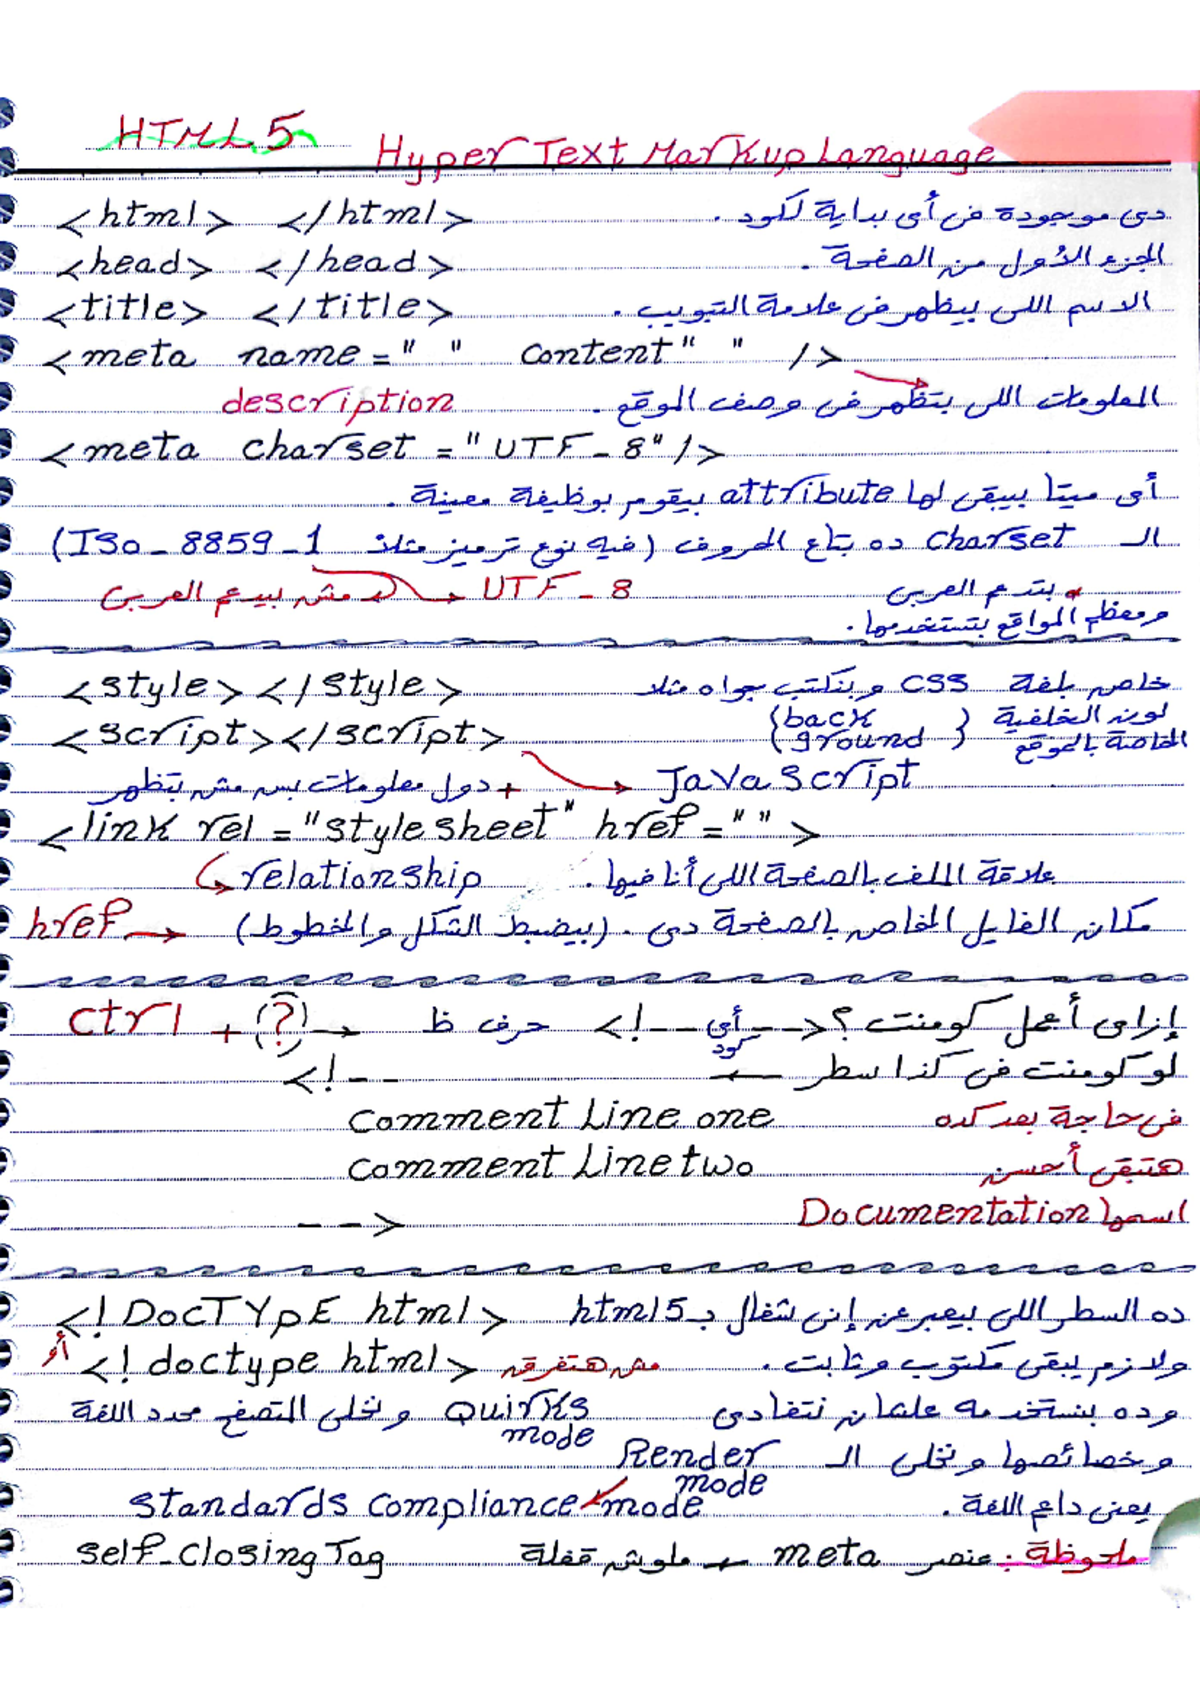 HTML5 Hyper Text Markup Language
<html> </html> دى موجودة فى أى بداية لكود .
<head> </head> الجزء الأول من الصفحة .
<title> </title> الاسم اللى بيظهر فى علامة التبويب .
<meta name=" " content" " />
description المعلومات اللى بتظهر فى وصف الموقع .
<meta charset = "UTF-8"/>
أى ميتا بيبقى لها attribute بيقوم بوظيفة معينة .
الـ charset ده بتاع الحروف (فيه نوع ترميز مثلا ISO-8859-1)
مش بيدعم العربى UTF-8 بتدعم العربى
ومعظم المواقع بتستخدمها .
<style></style> خاص بلغة CSS وبنكتب جواه مثلا
<script></script> لون الخلفية {back ground} الخاصة بالموقع
JavaScript + دول معلومات بس مش بتظهر
<link rel = "stylesheet" href = "">
relationship علاقة الملف بالصفحة اللى أنا فيها .
href → مكان الفايل الخاص بالصفحة دى . (بيضبط الشكل والخطوط)
إزاى أعمل كومنت ؟ <!-- أى كود --> حرف ظ ctrl + (?)
لو كومنت فى كذا سطر <!--
Comment Line one فى حاجة بعد كده
Comment Line two هتبقى أحسن
--> اسمها Documentation
<! DOCTYPE html> ده السطر اللى بيعبر عن إنى شغال بـ html5
أو <! doctype html> مش هتفرق ولازم يبقى مكتوب وثابت .
وده بنستخدمه علشان نتفادى Quirks mode ونخلى المتصفح محدد اللغة
وخصائصها ونخلى الـ Render mode
Standards Compliance mode يعنى داعم اللغة .
ملحوظة : عنصر meta → ملوش قفلة self-closing Tag